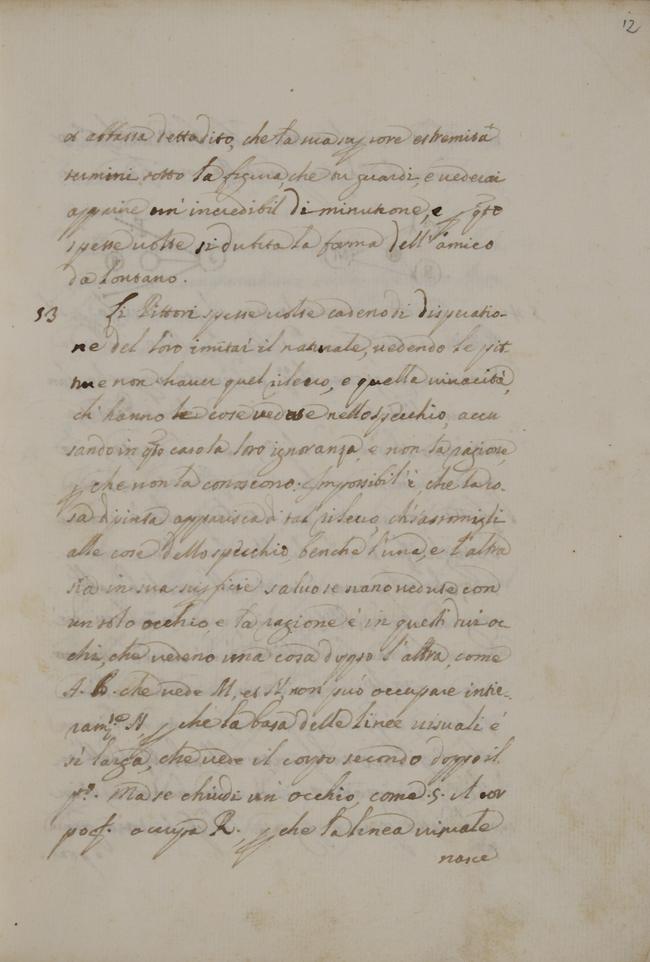 12
et abbassa detto dito, che la sua superiore estremità
termini sotto la figura, che tu guardi, e vederai
apparire un' incredibil diminutione, e p qto
spesse volte si dubita la forma dell' amico
da lontano.
53 Li Pittori spesse volte cadeno di disperatio-
ne del loro imitar il naturale, vedendo le pit-
ture non haver quel rilevo, e quella vivacità,
ch' hanno le cose vedute nello specchio, accu
sando in qto caso la loro ignoranza, e non la ragione,
p che non la conoscono. Impossibil' è, che la co-
sa dipinta apparisca di tal rilevo, ch' assomigli
alle cose dello specchio, benche l' una, e l' altra
sia in sua superficie salvo se nano vedute con
un solo occhio, e la ragione è in questi dui oc
chi, che vedeno una cosa doppo l' altra, come
A. B. che vede M, et N, non può occupare intie-
ramte N p che la basa delle linee visuali è
sì larga, che vede il corpo secondo doppo il
po. Ma se chiudi un' occhio, come .S. il cor
po f. occupa R., p che la linea visuale
nasce